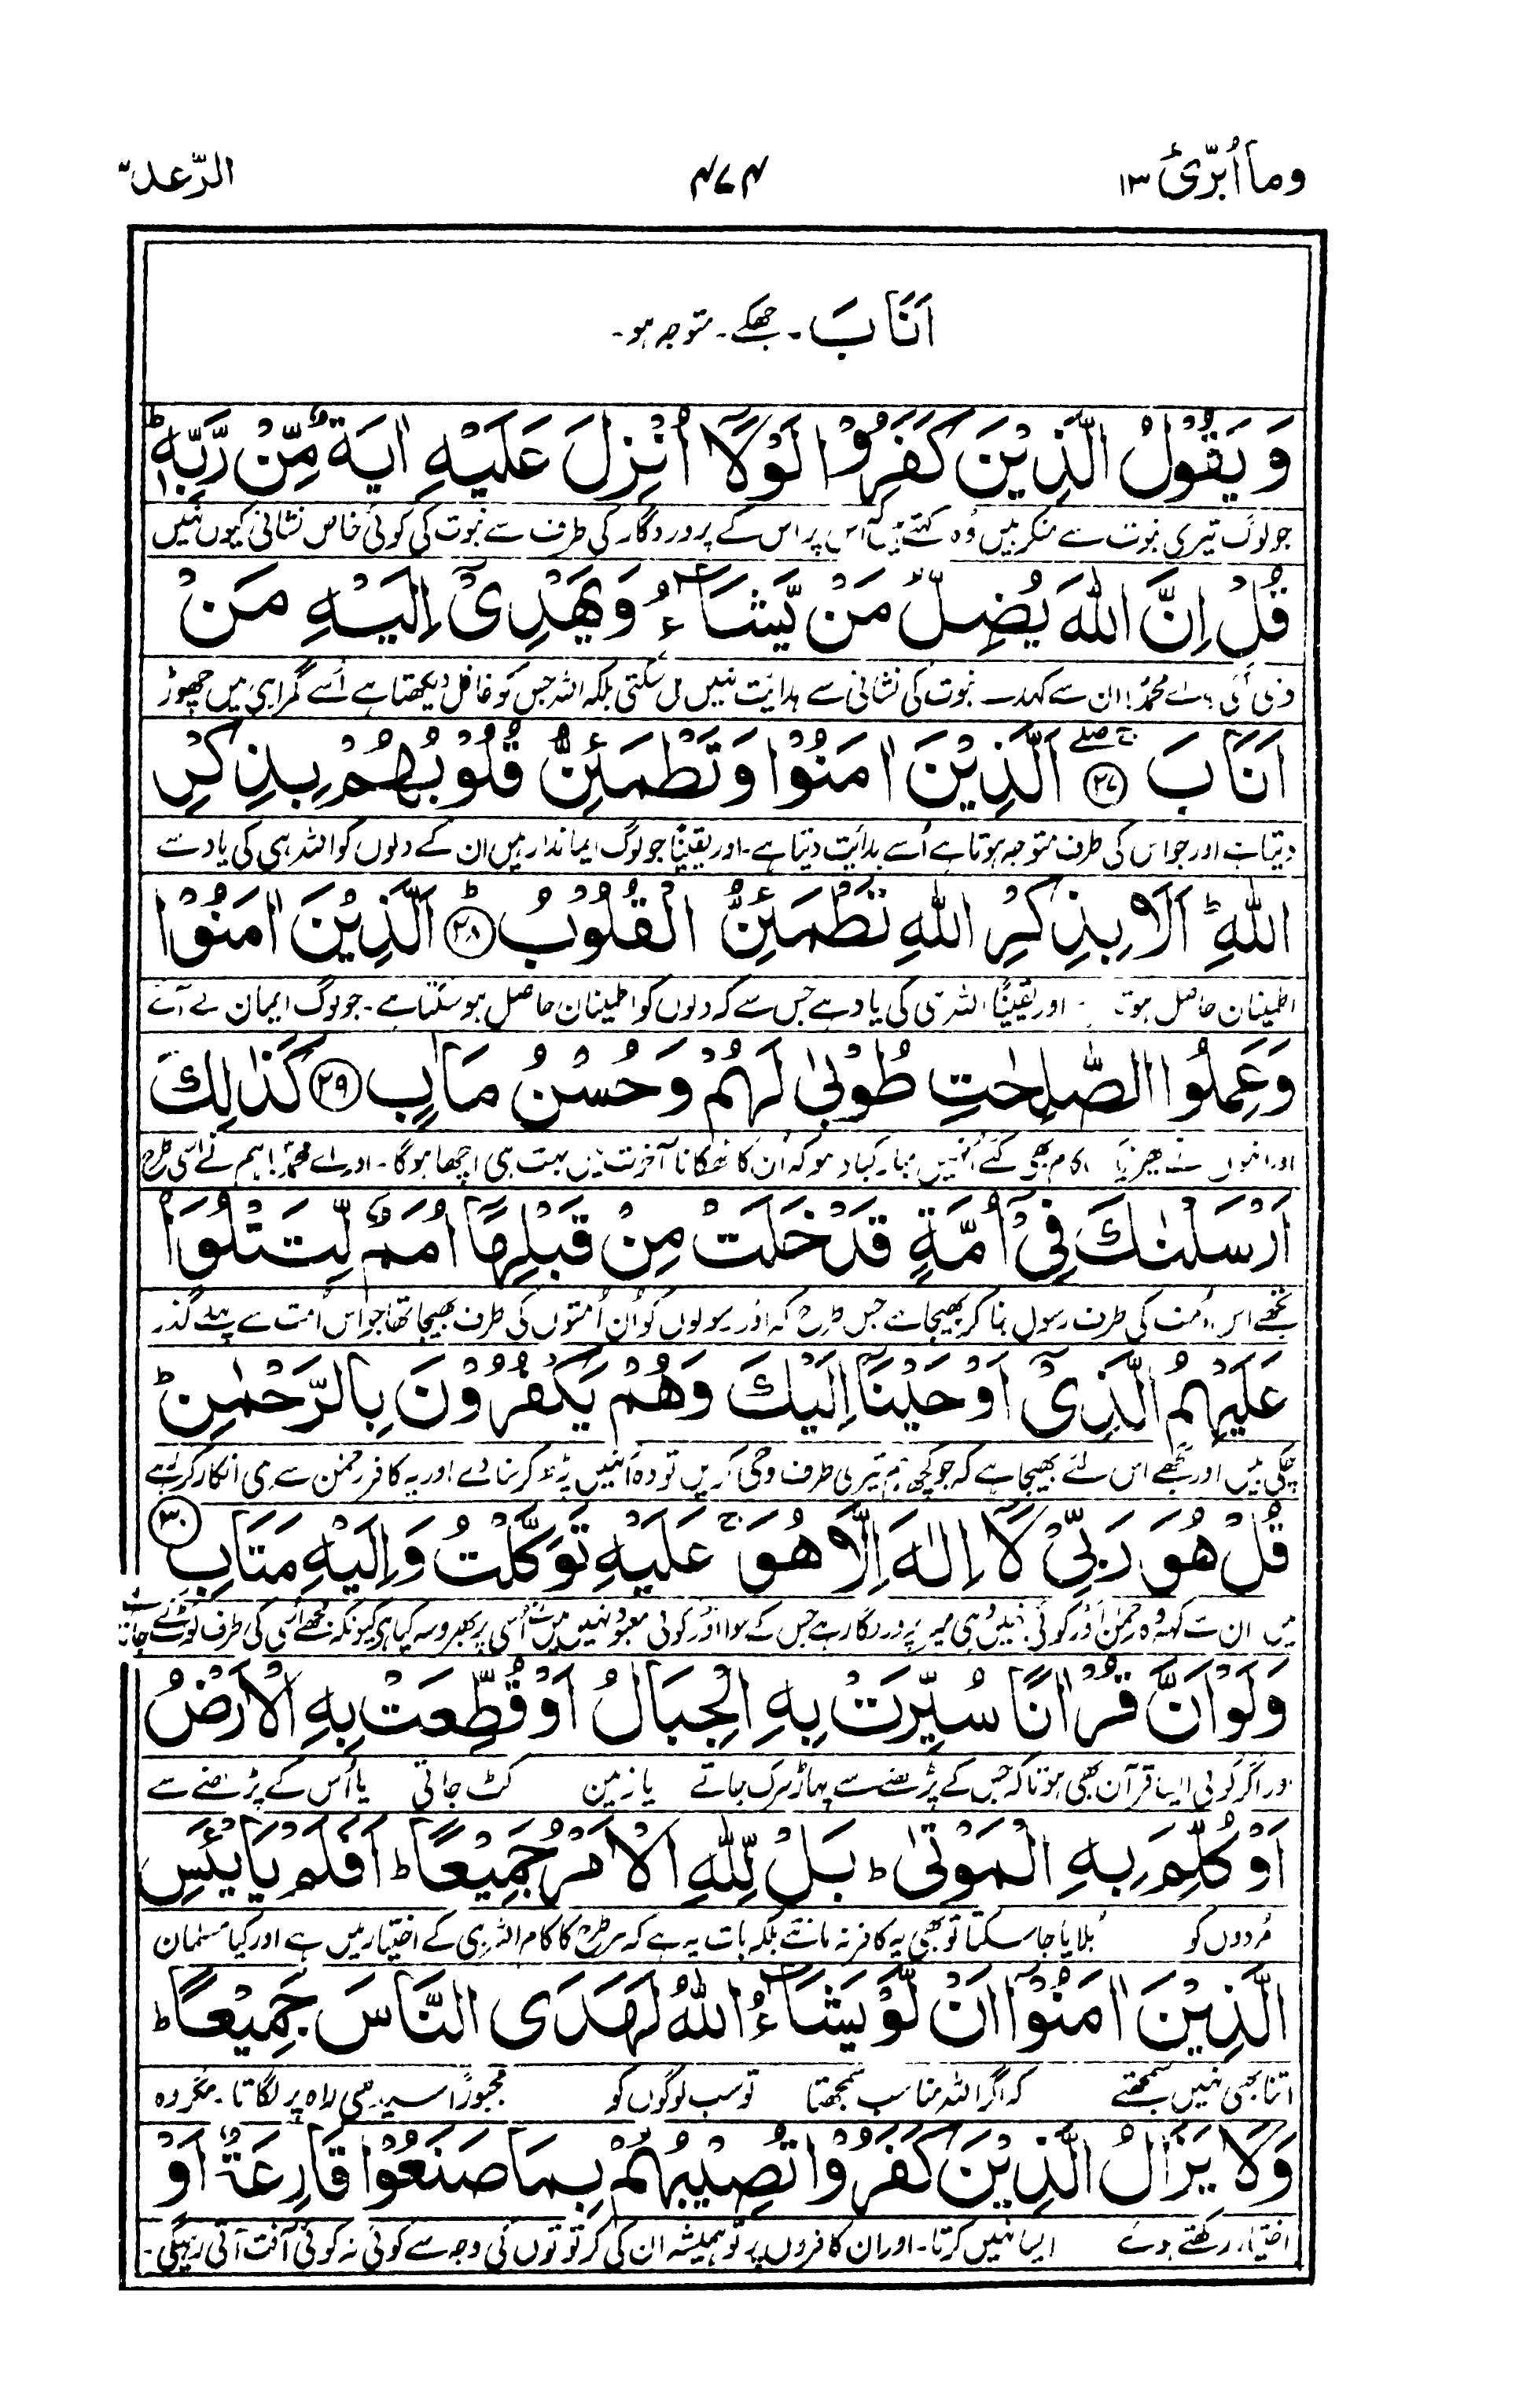 وما أُبَرِّئُ ١٣
۴۷۴
الرّعد ١٣
اَنَابَ۔ جھکے۔ متوجہ ہو۔
وَ يَقُوْلُ الَّذِيْنَ كَفَرُوْا لَوْلَاۤ اُنْزِلَ عَلَيْهِ اٰيَةٌ مِّنْ رَّبِّهٖ ؕ
جو لوگ تیری نبوت سے منکر ہیں وہ کہتے ہیں کہ اس پر اس کے پروردگار کی طرف سے نبوت کی کوئی خاص نشانی کیوں نہیں
قُلْ اِنَّ اللّٰهَ يُضِلُّ مَنْ يَّشَآءُ وَيَهْدِيْۤ اِلَيْهِ مَنْ
دی گئی، اے محمدؐ! ان سے کہدے نبوت کی نشانی سے ہدایت نہیں مل سکتی بلکہ اللہ جس کو غافل دیکھتا ہے اُسے گمراہی میں چھوڑ
اَنَابَ ۖۚ ﴿۲۷﴾ اَلَّذِيْنَ اٰمَنُوْا وَتَطْمَئِنُّ قُلُوْبُهُمْ بِذِكْرِ
دیتا ہے اور جو اس کی طرف متوجہ ہوتا ہے اُسے ہدایت دیتا ہے۔ اور یقیناً جو لوگ ایماندار ہیں ان کے دلوں کو اللہ ہی کی یاد سے
اللّٰهِ ؕ اَلَا بِذِكْرِ اللّٰهِ تَطْمَئِنُّ الْقُلُوْبُ ؕ ﴿۲۸﴾ اَلَّذِيْنَ اٰمَنُوْا
اطمینان حاصل ہوتا۔ اور یقیناً اللہ ہی کی یاد ہے جس سے کہ دلوں کو اطمینان حاصل ہو سکتا ہے۔ جو لوگ ایمان لے آئے
وَعَمِلُوا الصّٰلِحٰتِ طُوْبٰى لَهُمْ وَحُسْنُ مَاٰبٍ ﴿۲۹﴾ كَذٰلِكَ
اور انہوں نے کام بھی کئے اُنہیں مبارکباد ہو کہ اُن کا ٹھکانا آخرت میں بہت ہی اچھا ہوگا۔ اور اے محمدؐ! ہم نے اسی طرح
اَرْسَلْنٰكَ فِيْۤ اُمَّةٍ قَدْ خَلَتْ مِنْ قَبْلِهَاۤ اُمَمٌ لِّتَتْلُوَا۟
تجھے اس اُمت کی طرف رسول بنا کر بھیجا ہے جس طرح کہ اور رسولوں کو اُن اُمتوں کی طرف بھیجا تھا جو اس اُمت سے پہلے گذر
عَلَيْهِمُ الَّذِيْۤ اَوْحَيْنَاۤ اِلَيْكَ وَهُمْ يَكْفُرُوْنَ بِالرَّحْمٰنِ ؕ
چکی ہیں اور تجھے اس لئے بھیجا ہے کہ جو کچھ ہم تیری طرف وحی کریں تو وہ اُنہیں پڑھ کر سنا دے اور یہ کافر رحمٰن سے ہی انکار کر رہے
قُلْ هُوَ رَبِّيْ لَاۤ اِلٰهَ اِلَّا هُوَ ۚ عَلَيْهِ تَوَكَّلْتُ وَاِلَيْهِ مَتَابِ ﴿۳۰﴾
ہیں ان سے کہہ وہ رحمٰن اور کوئی نہیں وہی میرا پروردگار ہے جس کے سوا اور کوئی معبود نہیں میں نے اُسی پر بھروسہ کیا ہے کیونکہ مجھے اُسی کی طرف لوٹ کے جانا ہے
وَلَوْ اَنَّ قُرْاٰنًا سُيِّرَتْ بِهِ الْجِبَالُ اَوْ قُطِّعَتْ بِهِ الْاَرْضُ
اور اگر کوئی ایسا قرآن بھی ہوتا کہ جس کے پڑھنے سے پہاڑ سرک جاتے یا زمین کٹ جاتی یا اُس کے پڑھنے سے
اَوْ كُلِّمَ بِهِ الْمَوْتٰى ؕ بَلْ لِّلّٰهِ الْاَمْرُ جَمِيْعًا ؕ اَفَلَمْ يَايْـَٔسِ
مُردوں کو بُلایا جا سکتا تو بھی یہ کافر نہ مانتے بلکہ بات یہ ہے کہ ہر طرح کا کام اللہ ہی کے اختیار میں ہے اور کیا مسلمان
الَّذِيْنَ اٰمَنُوْۤا اَنْ لَّوْ يَشَآءُ اللّٰهُ لَهَدَى النَّاسَ جَمِيْعًا ؕ
اتنا بھی نہیں سمجھتے کہ اگر اللہ مناسب سمجھتا تو سب لوگوں کو مجبوراً سیدھی راہ پر لگاتا۔ مگر وہ
وَلَا يَزَالُ الَّذِيْنَ كَفَرُوْا تُصِيْبُهُمْ بِمَا صَنَعُوْا قَارِعَةٌ اَوْ
اختیار رکھتے ہوئے ایسا نہیں کرتا۔ اور ان کافروں پر تو ہمیشہ ان کی کرتوتوں کی وجہ سے کوئی نہ کوئی آفت آتی رہیگی۔